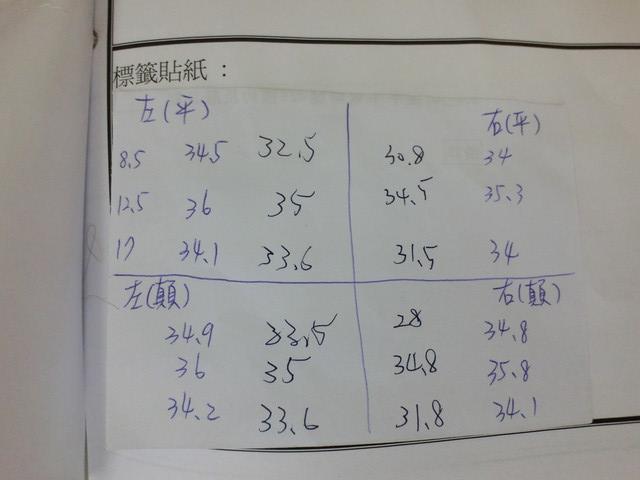 標籤貼紙：
左(平) 右(平)
8.5 34.5 32.5 30.8 34
12.5 36 35 34.5 35.3
17 34.1 33.6 31.5 34
左(顛) 右(顛)
34.9 33.5 28 34.8
36 35 34.8 35.8
34.2 33.6 31.8 34.1